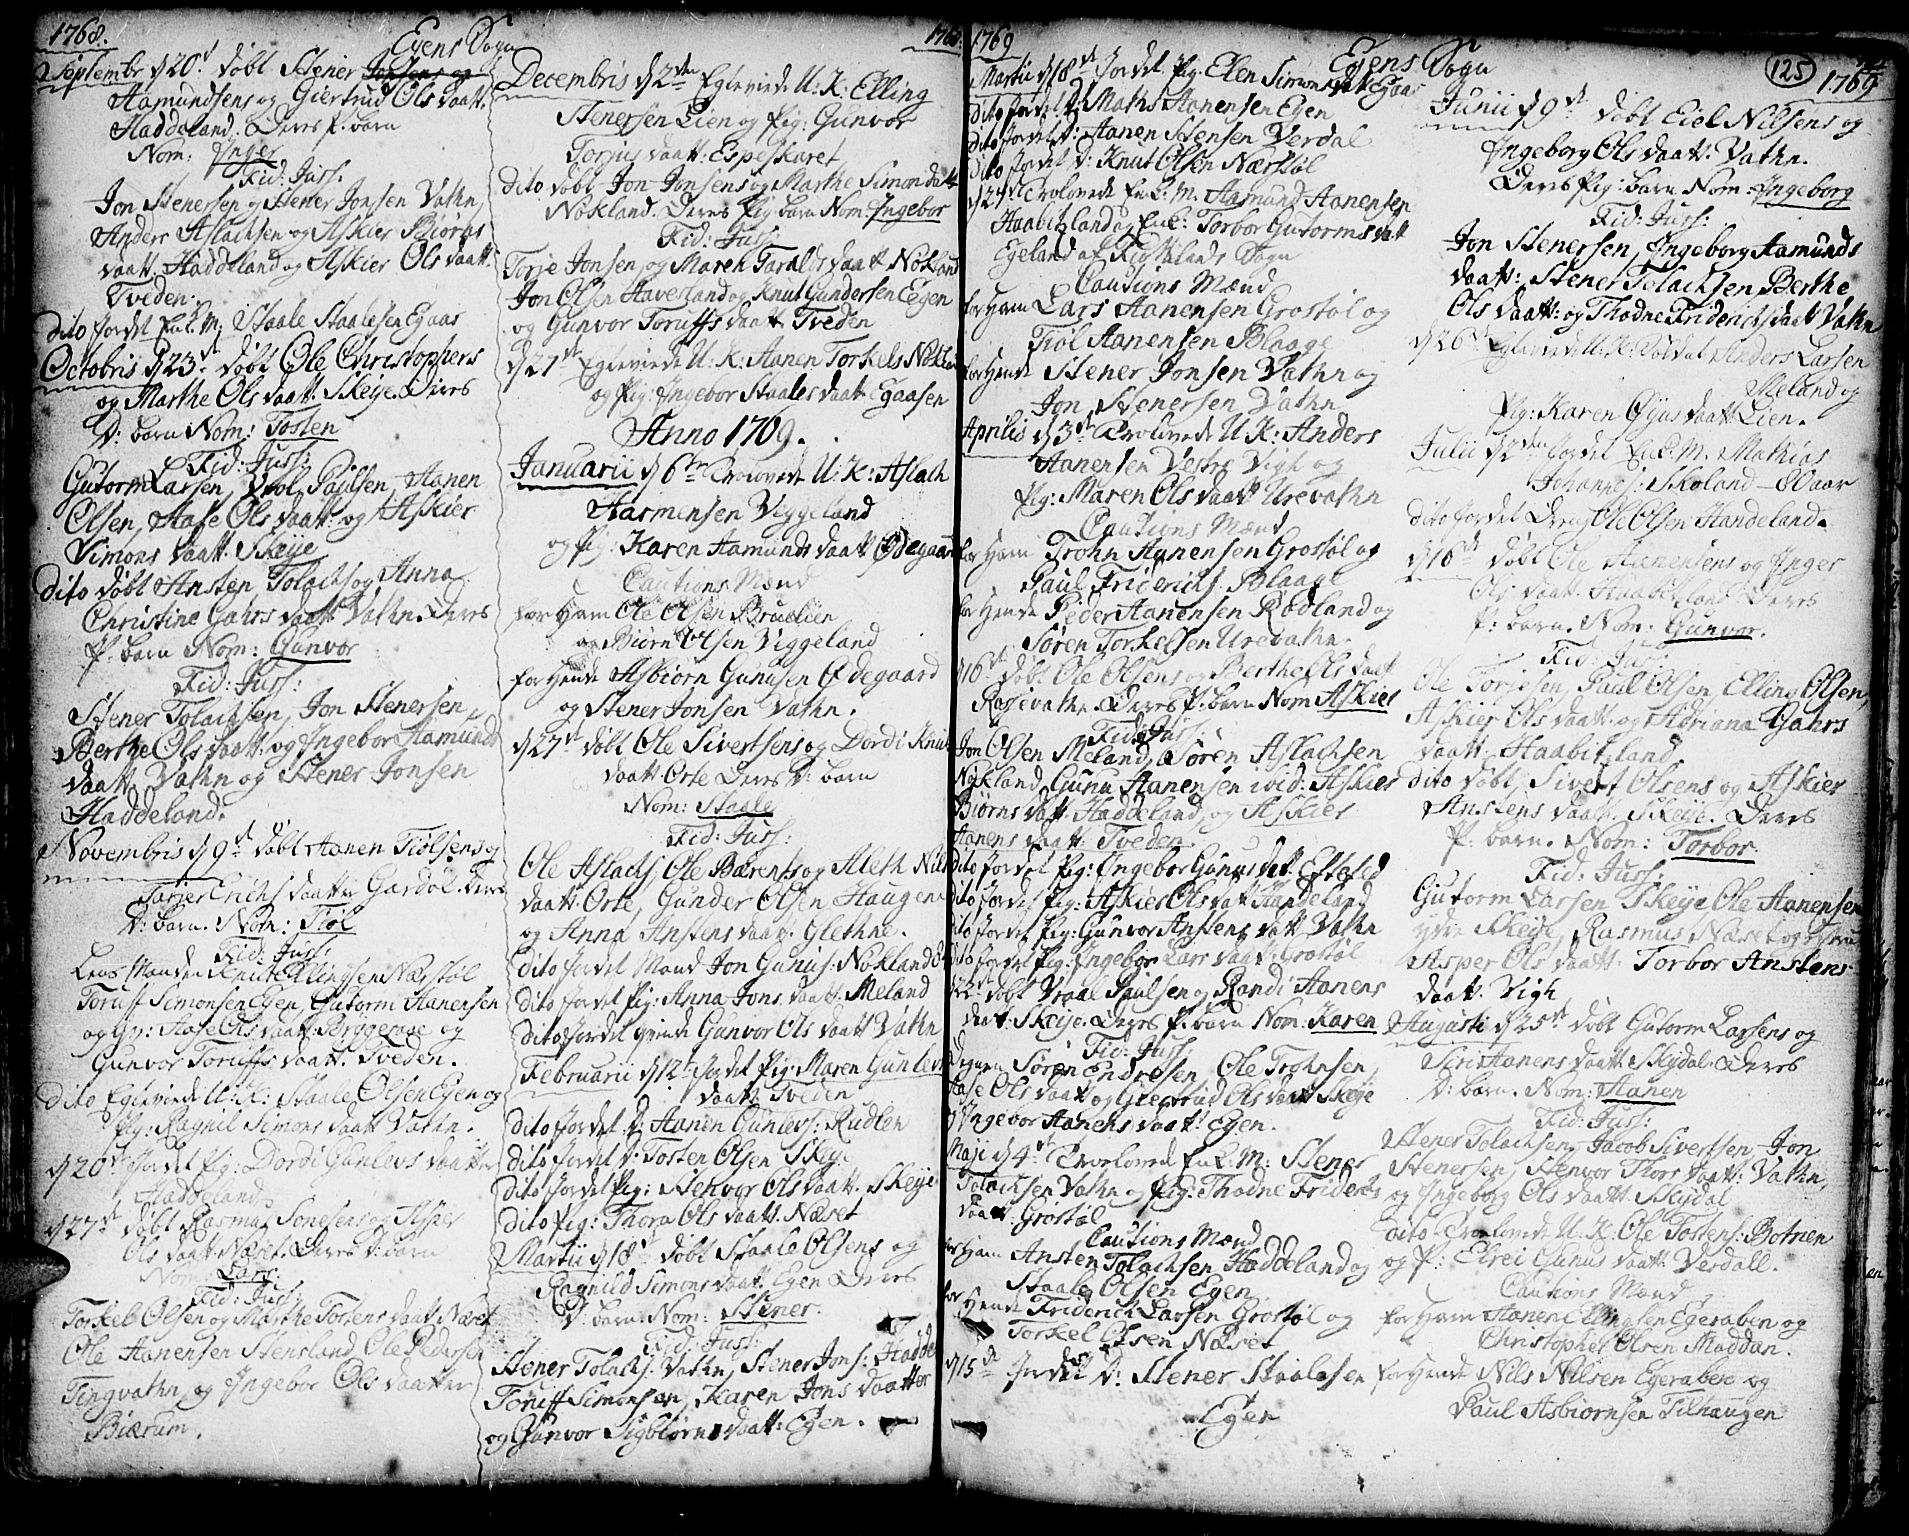 1768.
Egens Sogn
Septembr d 20de døbt Stener Jonsens og
Aamundsens og Giertrud Ols daatt.
Haddeland. Deres P. barn
Nom: Inger
Fid: Juss:
Jon Stenersen og Stener Jonsen Vathn,
Anders Aslachsen og Askier Biørns
daatt. Haddeland og Askier Ols daatt.
Tveden.
Dito Jordet Enk. M: Staale Staalesen Egaas
Octobris d 23de døbt Ole Christophers
og Marthe Ols daatt. Skeye. Deres
D: barn Nom: Tosten
Fid: Juss:
Gutorm Larsen, Vrol Paulsen, Aanen
Olsen, Aase Ols daatt: og Askier
Simons daatt. Skeije
Dito døbt Ansten Tolachs og Anna
Christine Gahrs daatt. Vathn. Deres
P: barn Nom: Gunvor
Fid: Juss:
Stener Tolachsen, Jon Stenersen,
Berthe Ols daatt: og Ingebor Aamunds
daatt. Vathn og Stener Jonsen
Haddeland.
Novembris d 9de døbt Aanen Tiølsens og
Tarjer Erichs daatter Gardøl. Deres
D: barn. Nom: Tiøl
Fid: Juss:
Lens Manden Knut Ellingsen Nærstøl
Toruf Simonsen Egen, Gutorm Aanensen
og Aase Ols daatt. Bryggesaae og
Gunvor Toruffs daatt. Tveden.
Dito Egtevivede U: K: Staale Olsen Egen og
Pig: Ragnil Simons daatt. Vathn.
d 20de Jordet Pig: Dordi Gunlevs daatter
Haddeland
d 27de døbt Rasmus Tonesens og Asper
Ols daatt Næset. Deres D: barn
Nom: Lars
Fid: Juss:
Torkel Olsen og Marthe Tostens daatt. Næset
Ole Aanensen Stensland, Ole Pedersen
Tingvathn og Ingebor Ols daatter
Biærum.
1768
Decembris d 2den Egtevivede U: K: Elling
Stenersen Lien og Pig: Gunvor
Torjus daatt: Espeskaret
Dito døbt Jon Jonsens og Marthe Simons datt
Nokland. Deres Pig barn Nom: Ingebor
Fid: Juss:
Torje Jonsen, og Maren Taralds daatt Nokland
Jon Olsen Haverland og Knut Gundersen Egen
og Gunvor Toruffs daatt. Tveden
d 27de Egtevivede U: K: Aanen Torkels Nokland
og Pig: Ingebor Staales daatt. Egaasen
Anno 1769.
Januarii d 6te Trolovede U: K: Aslach
Aasmensen Viggeland
og Pig: Karen Aamunds daatt Ødegaard
Cautions Mænd
for Ham Ole Olsen Bruelien
og Biørn Olsen Viggeland
for Hende Asbiørn Gunusen Ødegaard
og Stener Jonsen Vathn.
d 27de døbt Ole Sivertsens og Dordi Knuts
daatt. Orte Deres D: barn
Nom: Staale
Fid: Juss:
Ole Aslachs, Ole Bærents og Aleth Nils
daatt: Orte, Gunder Olsen Haugen
og Anna Anstens daatt: Glethne.
Dito Jordet Mand Jon Gunus: Nokland
Dito Jordet Pig: Anna Jons daatt: Meland
Dito Jordet qvinde Gunvor Ols daatt Vathn
Februarii d 12te Jordet Pig: Maren Gunlevs
daatt: Tveden
Dito Jordet D: Aanen Gunlevs: Rudlen
Dito Jordet D: Tosten Olsen Skeye
Dito Jordet Pig: Stenvor Ols daatt. Skeye
Dito Pig: Thora Ols daatt. Næset
Martii d 18de døbt Staale Olsens og
Ragnild Simons daatt. Egen Deres
D: barn. Nom: Stener.
Fid: Juss:
Stener Tolachs: Vathn, Stener Jons: Hadde
Toruff Simonsen, Karen Jons daatter
og Gunvor Sigbiørns daatt: Egen.
1769
Egens Sogn
Martii d 18de Jordet Pig: Elen Simons datt Egaas
Dito Jordet D: Mathis Aanensen Egen
Dito Jordet D: Aanen Stensen Verdal
Dito Jordet D: Knut Olsen Nærstøl
d 27de Trolovede Enk. M. Aamund Aanensen
Haabitzland og Enk: Torbor Gutorms datt
Egeland af Fiotlands Sogn
Cautions Mænd
for Ham Lars Aanensen Grostøl og
Tiøl Aanensen Blaage
for Hende Stener Jonsen Vathn og
Jon Stenersen Vathn
Aprilis d 3de Trolovede U: K: Anders
Aanensen Vestre Vigh og
Pig: Maren Ols daatt Urevathn
Cautions Mænd
for Ham Trohn Aanensen Grostøl og
Paul Friderichs. Blaage
for Hende Peder Aanensen Rødland og
Søren Torkelsen Urevathn.
d 16de døbt Ole Olsens og Berthe Ols daatt
Rossevathn. Deres P. barn Nom Askier
Fid: Juss:
Jon Olsen Meland, Søren Aslachsen
Nøkland, Gunu Aanensen ibid: Askier
Biørns datt. Haddeland, og Askier
Aanens daatt: Tveden
Dito Jordet Pig: Ingebor Gunus datt Eftestd
Dito Jordet Pig: Askier Ols datt Handeland
Dito Jordet Pig: Gunvor Anstens datt Vathn
Dito Jordet Pig: Ingebor Lars daat Grostøl
døbt Vraal Paulsen og Randi Aanens
daatt: Skeije. Deres P: barn Nom: Karen
Fid: Juss:
Degnen Søren Endresen, Ole Trohnsen,
Aase Ols daatt og Giertrud Ols daatt Skeije
Ingebor Aanens daatt: Egen.
Maji d 4de Trolovede Enk: M: Stener
Tolachsen Vathn og Pig: Thodne Friderichs
daatt. Grostøl
Cautions Mænd
for Ham Ansten Tolachsen Haddeland og
Staale Olsen Egen
for Hende Friderich Larsen Grostøl og
Torkel Olsen Næset
d 15de Jordet D: Stener Staalesen
Egen
125
1769
Junii d 9de døbt Eiel Nilsens og
Ingeborg Ols daatt: Vathn.
Deres Pig: barn Nom: Ingeborg
Fid: Juss:
Jon Stenersen, Ingeborg Aamunds
daatt: Stener Tolachsen, Berthe
Ols daatt: og Thodne Friderichs daatt Vathn
d 26de Egtevivede U: K: Anders Larsen
Meland og
Pig: Karen Gyus daatt Lien.
Julii d 2den Jordet Enk. M. Mathias
Johannes: Skoland
Dito Jordet Dreng Ole Olsen Handeland.
d 16de døbt Ole Aanensens og Inger
Ols daatt. Haabitzland Deres
P: barn. Nom: Gunvor.
Fid: Juss:
Ole Torjesen, Paul Olsen, Elling Olsen,
Askier Ols daatt. og Adriana Gahrs
daatt. Haabitzland
Dito døbt, Sivert Olsens og Askier
Anstens daatt. Skeye. Deres
P: barn. Nom: Torbor
Fid: Juss:
Gutorm Larsen Skeije Ole Aanensen
Skeije, Rasmus Næset og
Asper Ols daatt. Torbor Anstens
daatt. Vigh
Augusti d 25de døbt Gutorm Larsens og
Siri Aanens daatt Skeydal. Deres
D: barn. Nom: Aanen
Fid: Juss:
Stener Tolachsen, Jacob Sivertsen, Jon
Stenersen, Stenvor Thors daatt: Vathn,
og Ingeborg Ols daatt. Skeydal
Dito Trolovede U. K. Ole Tostens: Botnen
og P: Elrei Gunus daatt. Verdall.
Cautions Mænd
for Ham Aanen Ellingsen Egeraben og
Christopher Olsen Maddan.
for Hende Nils Nilsen Egerabene og
Paul Asbiørnsen Tilhaugen